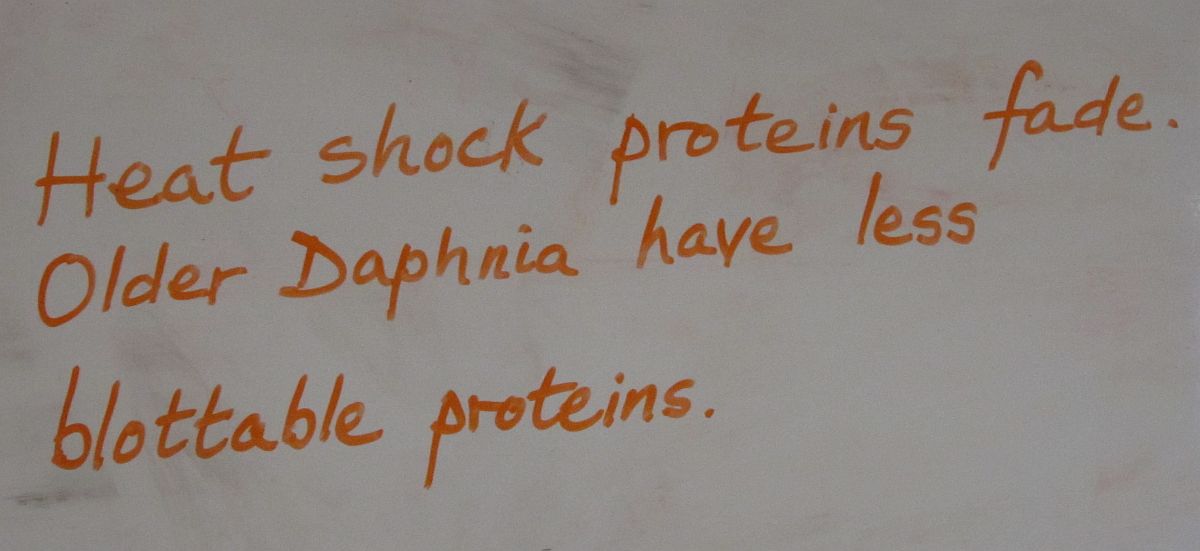 Heat shock proteins fade.
Older Daphnia have less
blottable proteins.